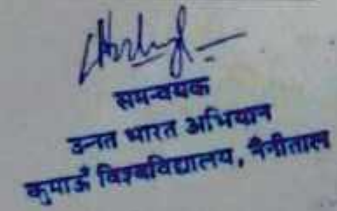 समन्वयक
उन्नत भारत अभियान
कुमाऊँ विश्वविद्यालय, नैनीताल